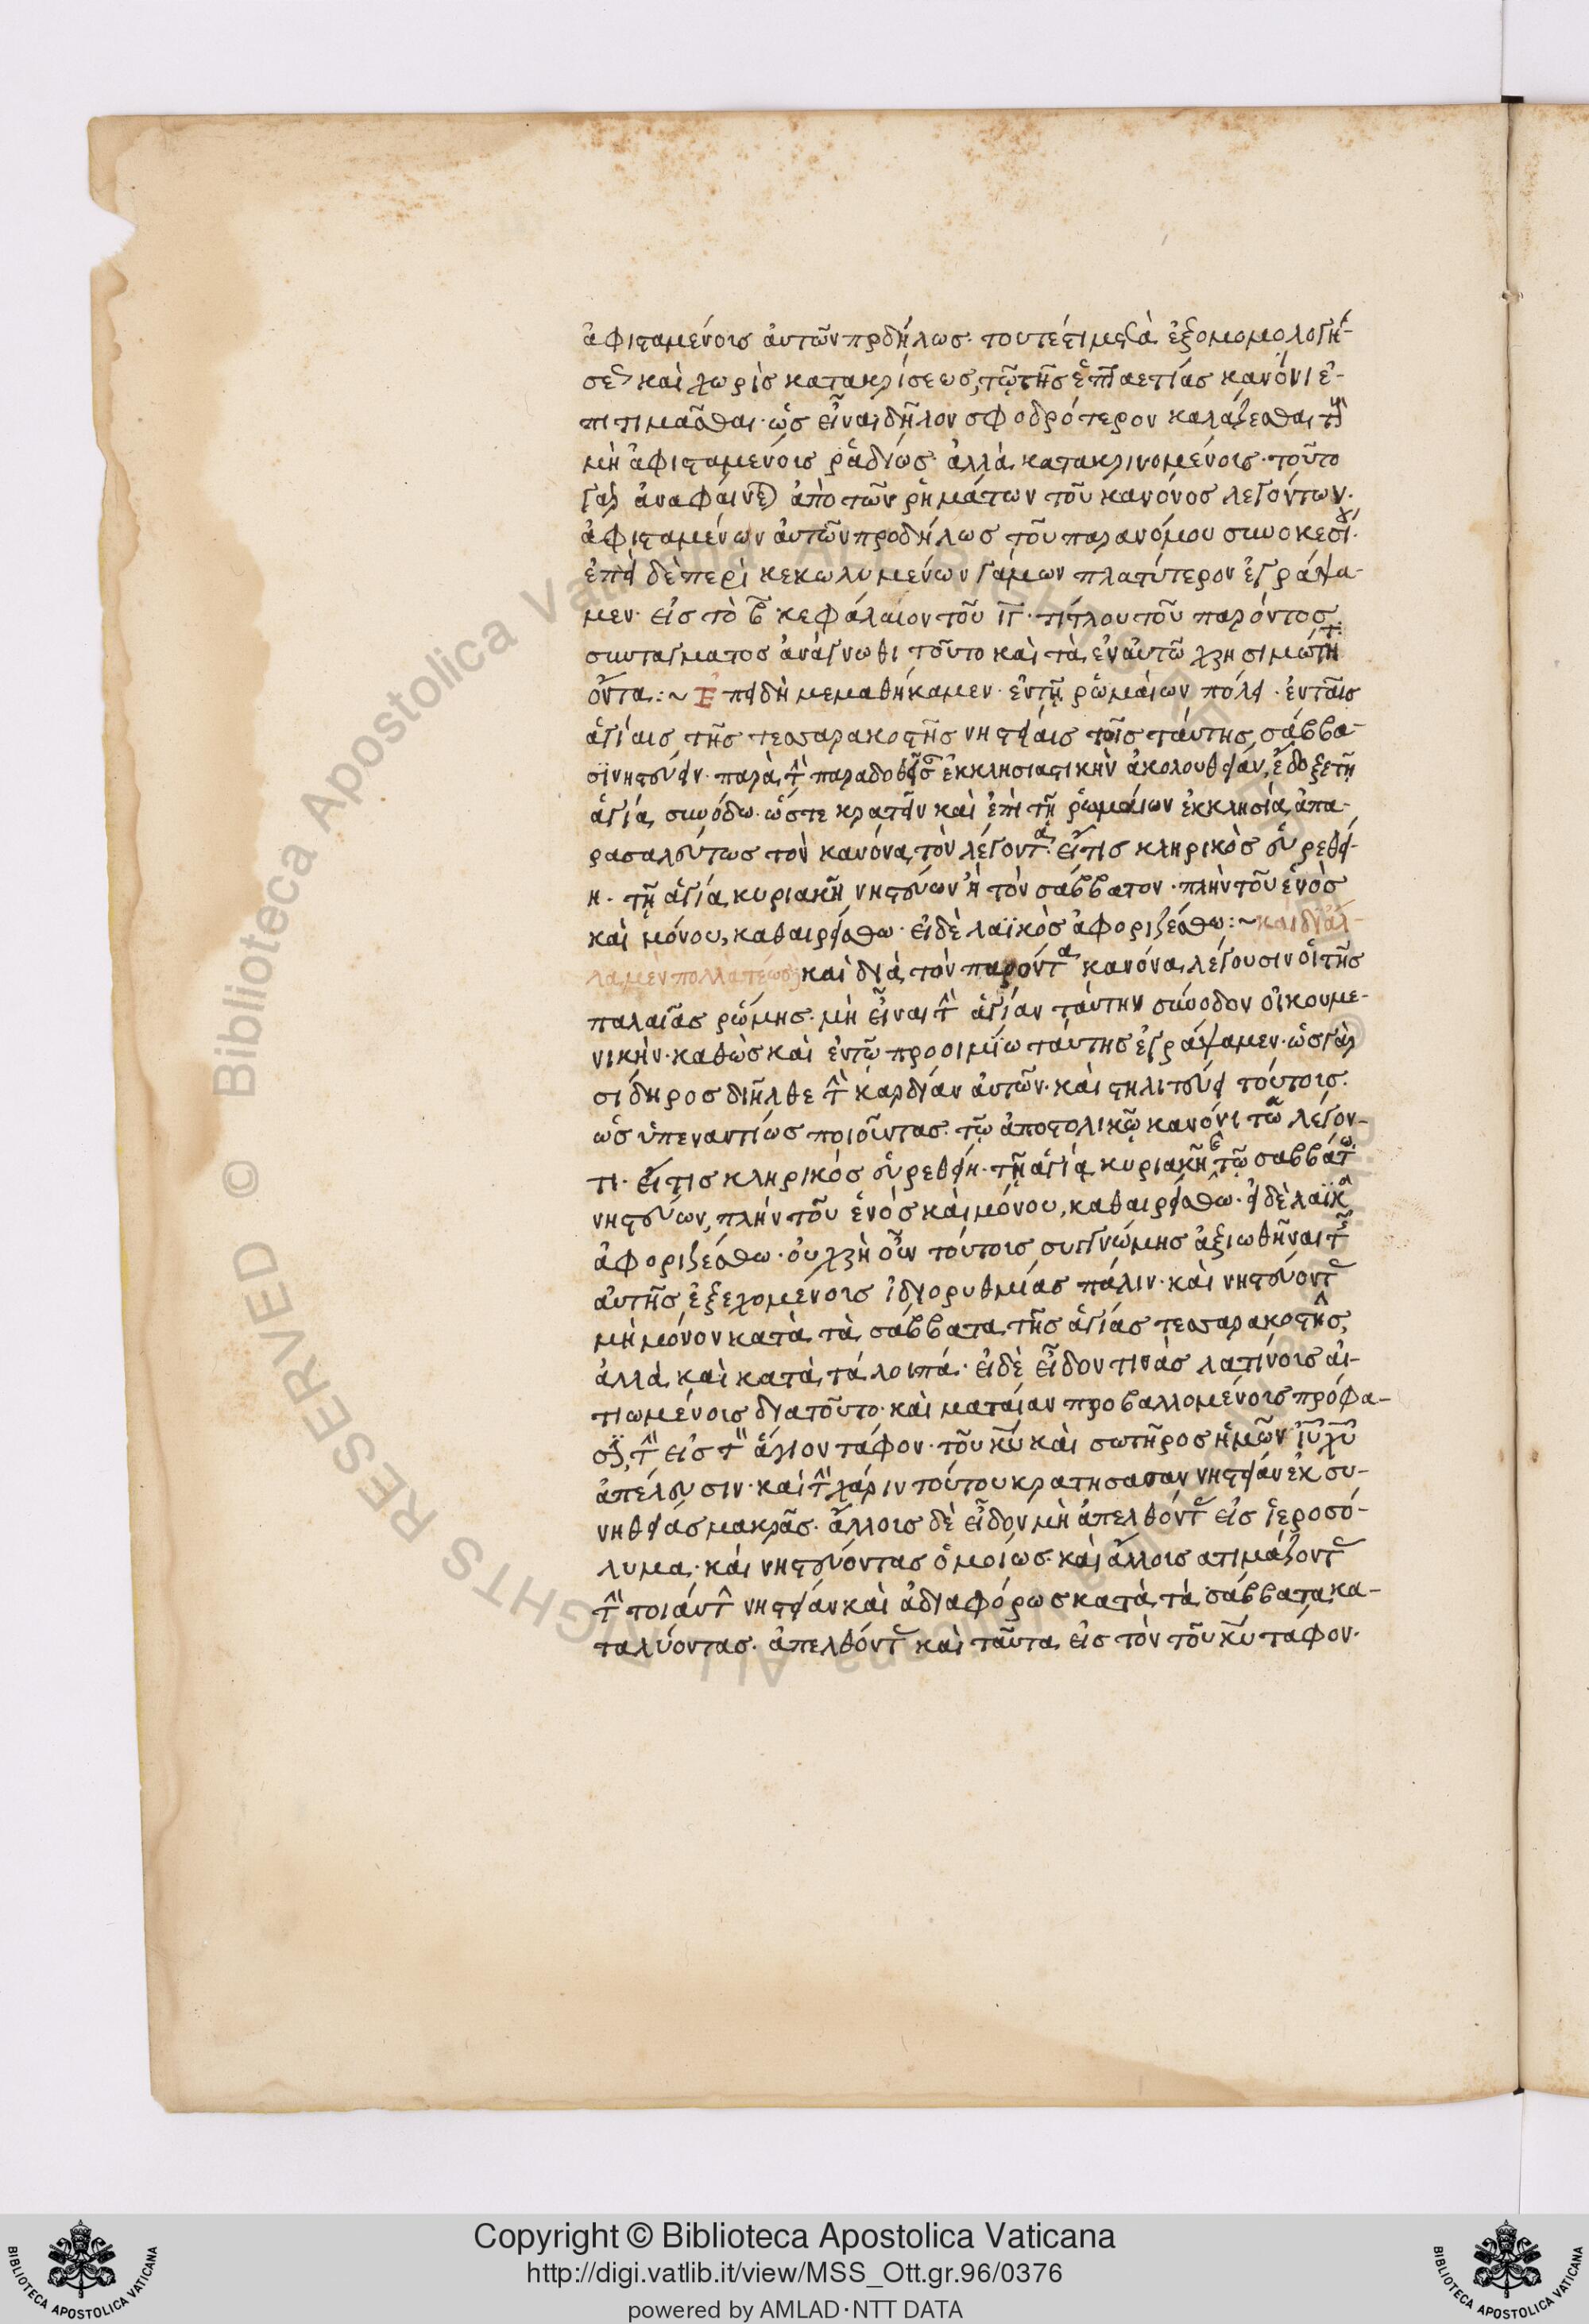 ἀφισταμένοις ἀυτῶν προδήλως· τουτέστι μετὰ ἐξομομολογή-
σεως καὶ χωρὶς κατακρίσεως, τῶ τῆς ἑπταετίας κανόνι ἐ-
πιτιμᾶσθαι· ὡς εἶναι δῆλον σφοδρότερον καλάζεσθαι τοὺς
μὴ ἀφισταμένοις ῥᾳδίως· ἀλλὰ κατακρινομένοις· τοῦτο
γὰρ ἀναφαίνεται ἀπὸ τῶν ῥημάτων τοῦ κανόνος λεγόντων·
ἀφισταμένων ἀυτῶν προδήλως τοῦ παρανόμου συνοικεσίου·
ἐπεὶ δὲ περὶ κεκωλυμένων γάμων πλατύτερον ἐγράψα-
μεν· εἰς τὸ β̅ κεφάλαιον τοῦ ιγ̅· τίτλου τοῦ παρόντος
συντάγματος ἀνάγνωθι τοῦτο καὶ τὰ ἐν ἀυτῶ χρησιμώτατα
ὄντα:~ Ἐπειδὴ μεμαθήκαμεν· ἐν τῇ ῥωμαίων πόλει· ἐν ταῖς
ἁγίαις τῆς τεσσαρακοστῆς νηστείαις τοῖς ταύτης σάββα-
σϊ νηστεύειν· παρὰ τὴν παραδοθεῖσαν ἐκκλησιαστικὴν ἀκολουθείαν, ἔδοξε τῇ
ἁγίᾳ συνόδω· ὥστε κρατεῖν καὶ ἐπὶ τῇ ῥωμαίων ἐκκλησίᾳ ἀπα-
ρασαλεύτως τὸν κανόνα τὸν λέγοντα· εἴ τις κληρικὸς εὑρεθεί-
η· τῇ ἁγίᾳ κυριακῇ νηστεύων ἢ τὸν σάββατον· πλὴν τοῦ ἑνὸς
καὶ μόνου, καθαιρείσθω· εἰ δὲ λαϊκὸς ἀφοριζέσθω:~ καὶ δι' ἄλ-
λα μὲν πολλὰ τέως δὲ καὶ διὰ τὸν παρόντα κανόνα, λέγουσιν οἱ τῆς
παλαιᾶς ῥώμης· μὴ εἶναι τὴν ἁγίαν ταύτην σύνοδον οἰκουμε-
νικήν· καθὼς καὶ ἐν τῶ προοιμίω ταύτης ἐγράψαμεν· ὡς γὰρ
σίδηρος διῆλθε τὴν καρδίαν ἀυτῶν· καὶ στηλιτεύει τούτοις·
ὡς ὑπεναντίως ποιοῦντας· τῶ ἀποστολικῶ κανόνι τῶ λέγον-
τι· εἴ τις κληρικός εὑρεθείη· τῇ ἁγίᾳ κυριακῇ ἢ τῶ σαββάτω
νηστεύων, πλὴν τοῦ ἑνὸς καὶ μόνου, καθαιρείσθω· εἰ δὲ λαϊκὸς
ἀφοριζέσθω· οὐ χρὴ οὖν τούτοις συγγνώμης ἀξιωθῆναι τῆς
ἀυτῆς ἐξεχομένοις ἰδιορυθμίας πάλιν· καὶ νηστεύοντας
μὴ μόνον κατὰ τὰ σάββατα τῆς ἁγίας τεσσαρακοστῆς,
ἀλλὰ καὶ κατὰ τά λοιπά· εἰ δὲ εἶδον τινὰς λατίνοις ἀι-
τιωμένοις διατοῦτο· καὶ ματαίαν προβαλλομένοις πρόφα-
σιν, τὴν εἰς τὸν ἅγιον τάφον· τοῦ κυ καὶ σωτῆρος ἡμῶν ιυ χυ
ἀπέλευσιν· καὶ τὴν χάριν τούτου κρατήσασαν νηστείαν ἐκ συ-
νηθείας μακρᾶς· ἄλλοις δὲ εἶδον μὴ ἀπελθόντας εἰς ἱεροσό-
λυμα· καὶ νηστεύοντας ὁμοίως· καὶ ἄλλοις ατιμάζοντας
τὴν τοιαύτην νηστείαν καὶ ἀδιαφόρως κατὰ τὰ σάββατα κα-
ταλύοντας· ἀπελθόντας καὶ ταῦτα εἰς τὸν τοῦ κυ ταφον·
Copyright © Biblioteca Apostolica Vaticana
http://digi.vatlib.it/view/MSS_Ott.gr.96/0376
powered by AMLAD·NTT DATA